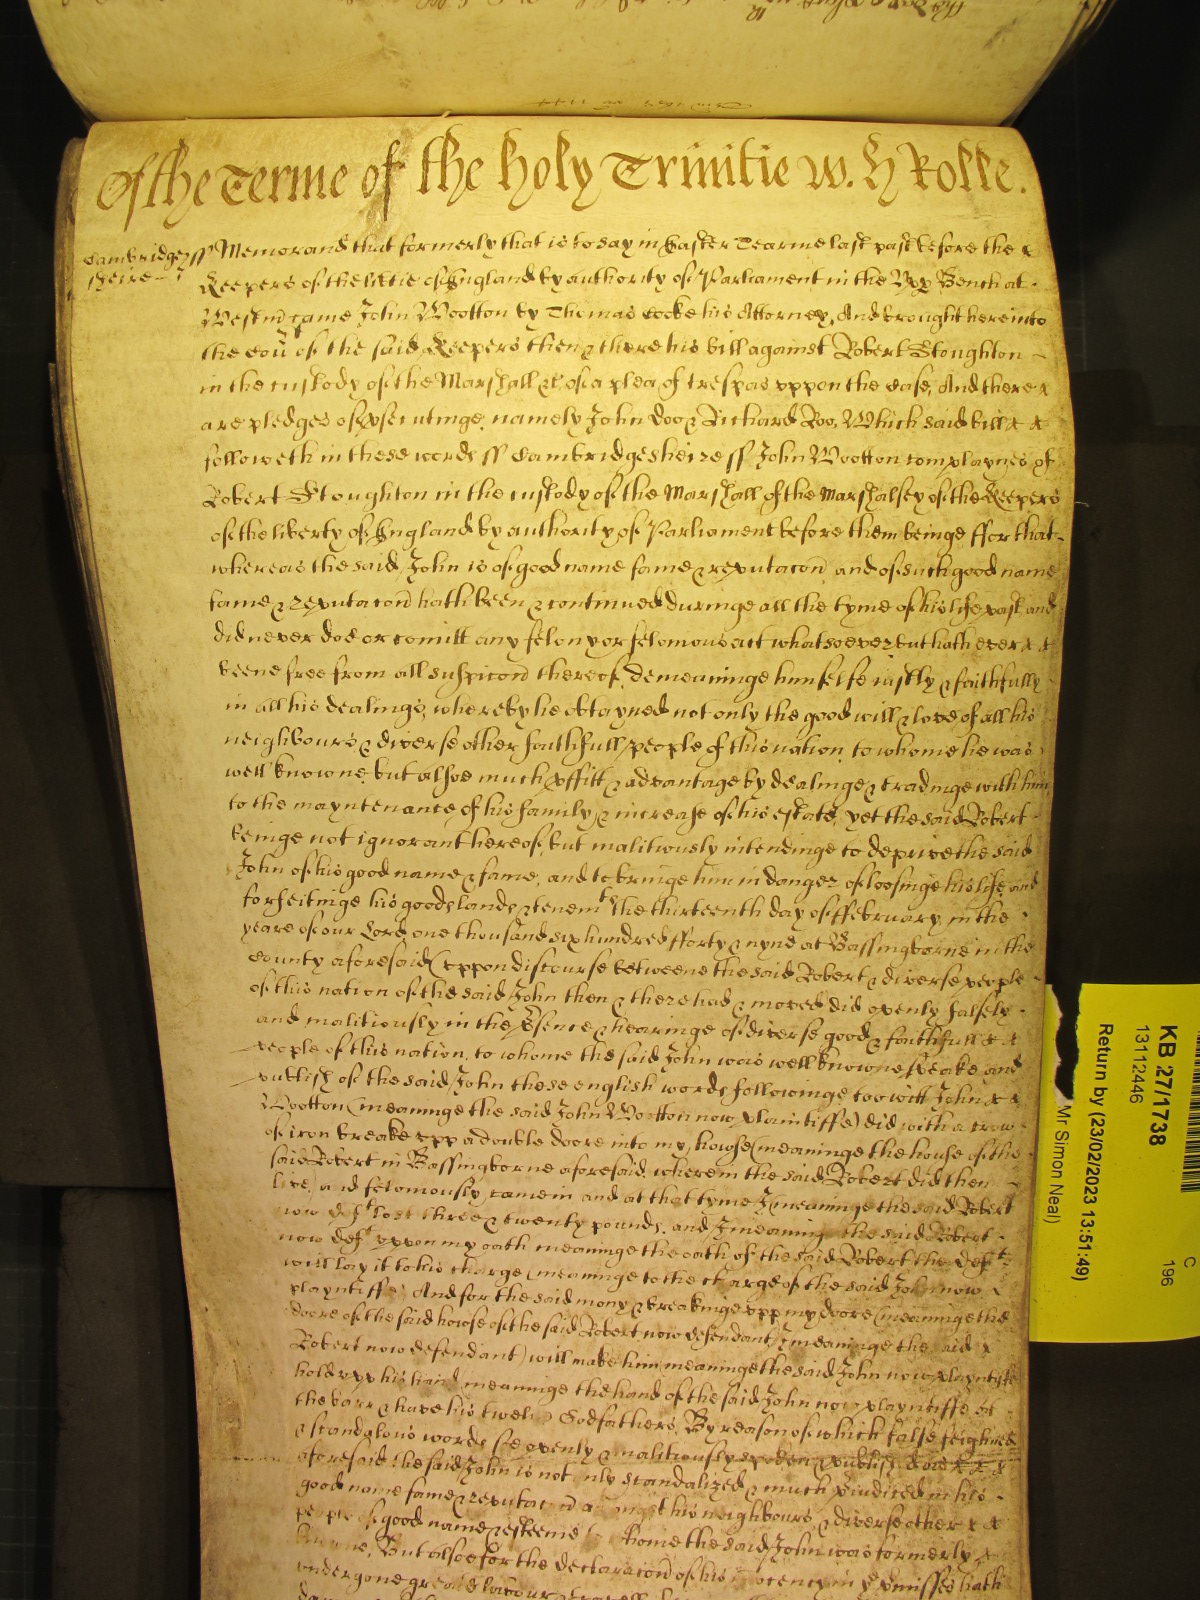 Of the Terme of the holy Trinitie w. H Rolle.
Cambridge
sheire
ss Memorand that formerly that is to say in Easter Tearme last past before the
Keepers of the libtie of England by authority of Parliament in the Upp Bench at
Westm came John Wootton by Thomas Cocke his Attorney, And brought here into
the cou͠t of the said Keepers then & there his bill against Robert Stoughton
in the custody of the Marshall &c of a plea of trespas uppon the case, And there
are pledges of psecutinge, namely John Doo & Richard Roo, Which said bill
followeth in these words ss Cambridgesheire ss John Wootton complaynes of
Robert Stoughton in the custody of the Marshall of the Marshalsey of the Keepers
of the liberty of England by authority of Parliament before them beinge ffor that
whereas the said John is of good name fame & reputacon and of such good name
fame & reputacon hath been & continued duringe all the tyme of his life past and
did never doe or comitt any felony or felonious act whatsoever but hath ever
beene free from all suspicon thereof, demeaninge himselfe justly & faithfully
in all his dealings, whereby he obtayned not only the good will & love of all his
neighbours & diverse other faithfull people of this nation to whome he was
well knowne, but alsoe much pffitt & advantage by dealinge & tradinge with him
to the mayntenance of his family & increase of his estate, yet the said Robert
beinge not ignorant hereof, but malitiously intendinge to deprive the said
John of his good name & fame, and to bringe him in danger of loosinge his life and
forfeitinge his goods lands & tenemts the thirteenth day of ffebruary in the
yeare of our Lord one thousand six hundred fforty & nyne at Bassingborne in the
County aforesaid (uppon discourse betweene the said Robert & diverse people
of this nation of the said John then & there had & moved did openly falsely
and malitiously in the psence & hearinge of diverse good & faithfull
people of this nation, to whome the said John was well knowne speake and
publish of the said John these english words followinge to witt John
Wootton (meaninge the said John Wootton now plaintiffe) did with a crow
of iron breake upp a double doore into my howse (meaninge the house of the
said Robert in Bassingborne aforesaid wherein the said Robert did then
live) and feloniously came in and at that tyme I (meaninge the said Robert
now deft) lost three & twenty pounds, and I meaning the said Robert
now deft uppon my oath meaninge the oath of the said Robert the deft
will lay it to his charge (meaninge to the charge of the said John now
playntiffe) And for the said mony & breakinge upp my doore (meaninge the
doore of the said howse of the said Robert now defendant) I (meaninge the said
Robert now defendant) will make him meaninge the said John now playntiffe
hold upp his hand meaninge the hand of the said John now playntiffe at
the barr & have his twelve Godfathers, By reason of which false feighned
& scandalous words soe openly & malitiously spoken & publisht
aforesaid the said John is not only scandalized & much piudiced in his
good name fame & reputacon amongst his neighbours & diverse other
people of good name & esteeme to whome the said John was formerly
knowne, But alsoe for the declaracon of his inocency in ye pmisses hath
undergone greate labour
KB 27/1738
13112446
Return by (23/02/2023 13:51:49)
Mr Simon Neal)
C
196